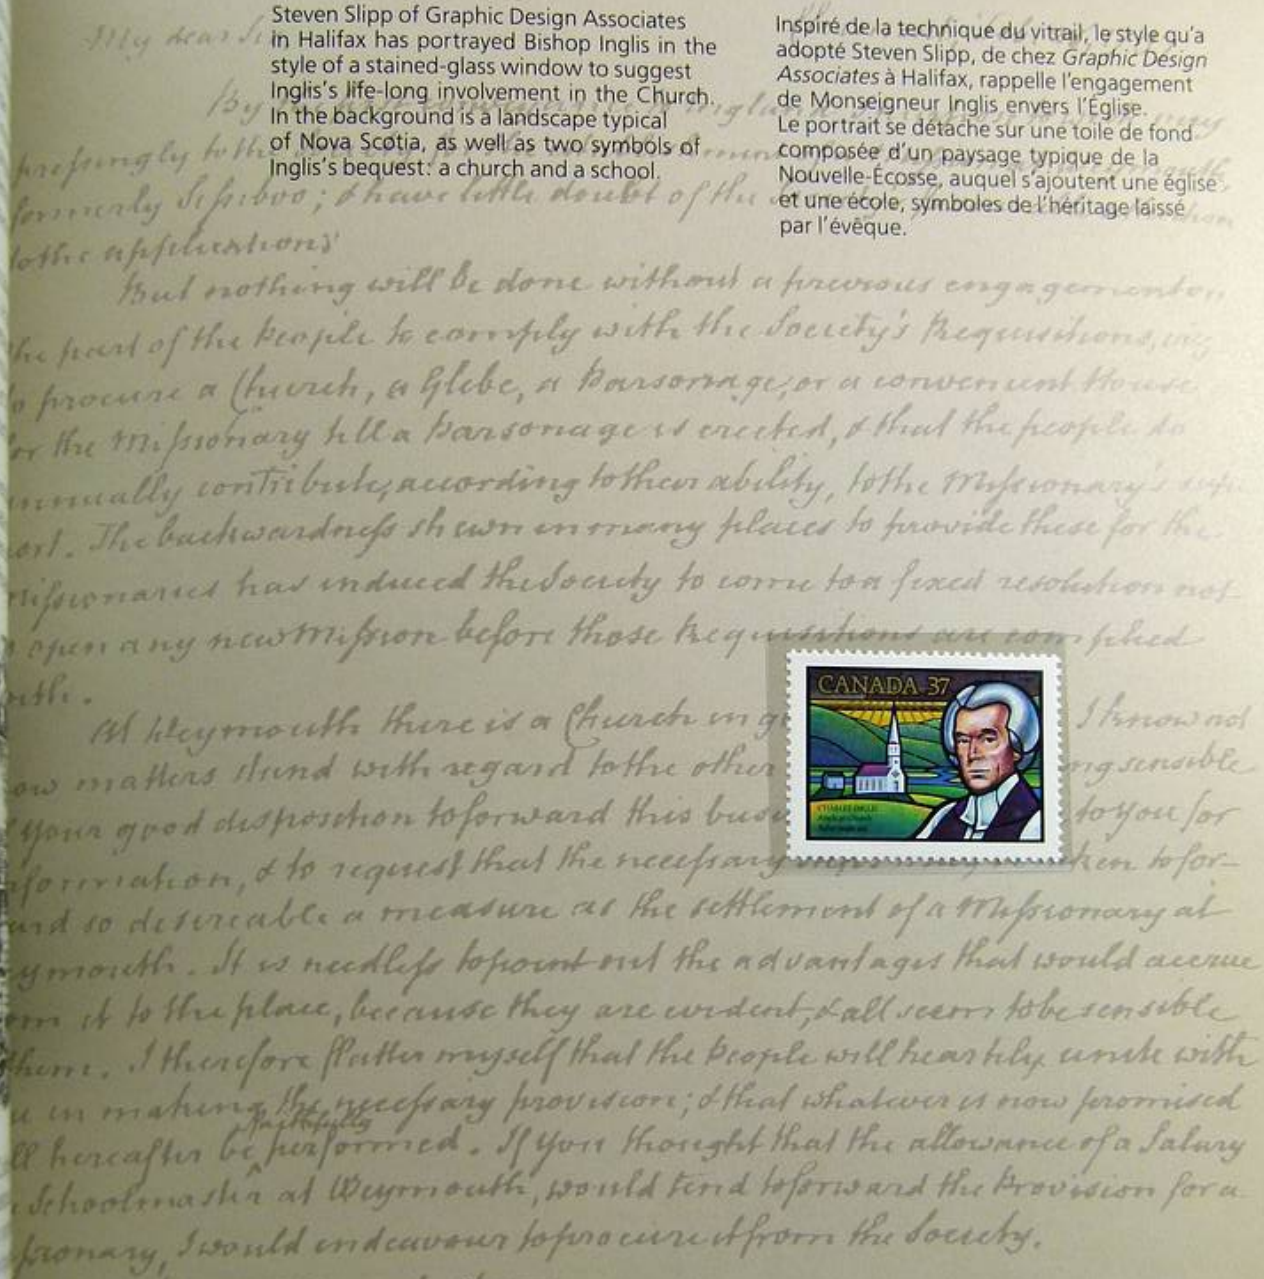 Steven Slipp of Graphic Design Associates
in Halifax has portrayed Bishop Inglis in the
style of a stained-glass window to suggest
Inglis's life-long involvement in the Church.
In the background is a landscape typical
of Nova Scotia, as well as two symbols of
Inglis's bequest: a church and a school.
Inspiré de la technique du vitrail, le style qu'a
adopté Steven Slipp, de chez Graphic Design
Associates à Halifax, rappelle l'engagement
de Monseigneur Inglis envers l'Église.
Le portrait se détache sur une toile de fond
composée d'un paysage typique de la
Nouvelle-Écosse, auquel s'ajoutent une église
et une école, symboles de l'héritage laissé
par l'évêque.
My dear
By
pressingly to th
formerly Sissiboo; & have little doubt of the
to the applications
But nothing will be done without a previous engagement
the part of the People to comply with the Society's Requisitions, viz
to procure a Church, a Glebe, a Parsonage, or a convenient House
or the Missionary till a Parsonage is erected, & that the people do
nnually contribute, according to their ability, to the Missionary's sup
ort. The backwardness shewn in many places to provide these for the
issionaries has induced the Society to come to a fixed resolution not
open any new Mission before those Requisitions are complied
ith.
At Weymouth there is a Church in I know not
ow matters stand with regard to the other ng sensible
your good disposition to forward this busi to you for
formation, & to request that the necessary ken to for-
ard so desireable a measure as the settlement of a Missionary at
ymouth. It is needless to point out the advantages that would accrue
om it to the place, because they are evident, & all seem to be sensible
them. I therefore flatter myself that the People will heartily unite with
u in making the necessary provision; & that whatever is now promised
ll hereafter be faithfully performed. If you thought that the allowance of a Salary
Schoolmaster at Weymouth, would tend to forward the Provision for a
sionary, I would endeavour to procure it from the Society.
CANADA 37
CHARLES INGLIS